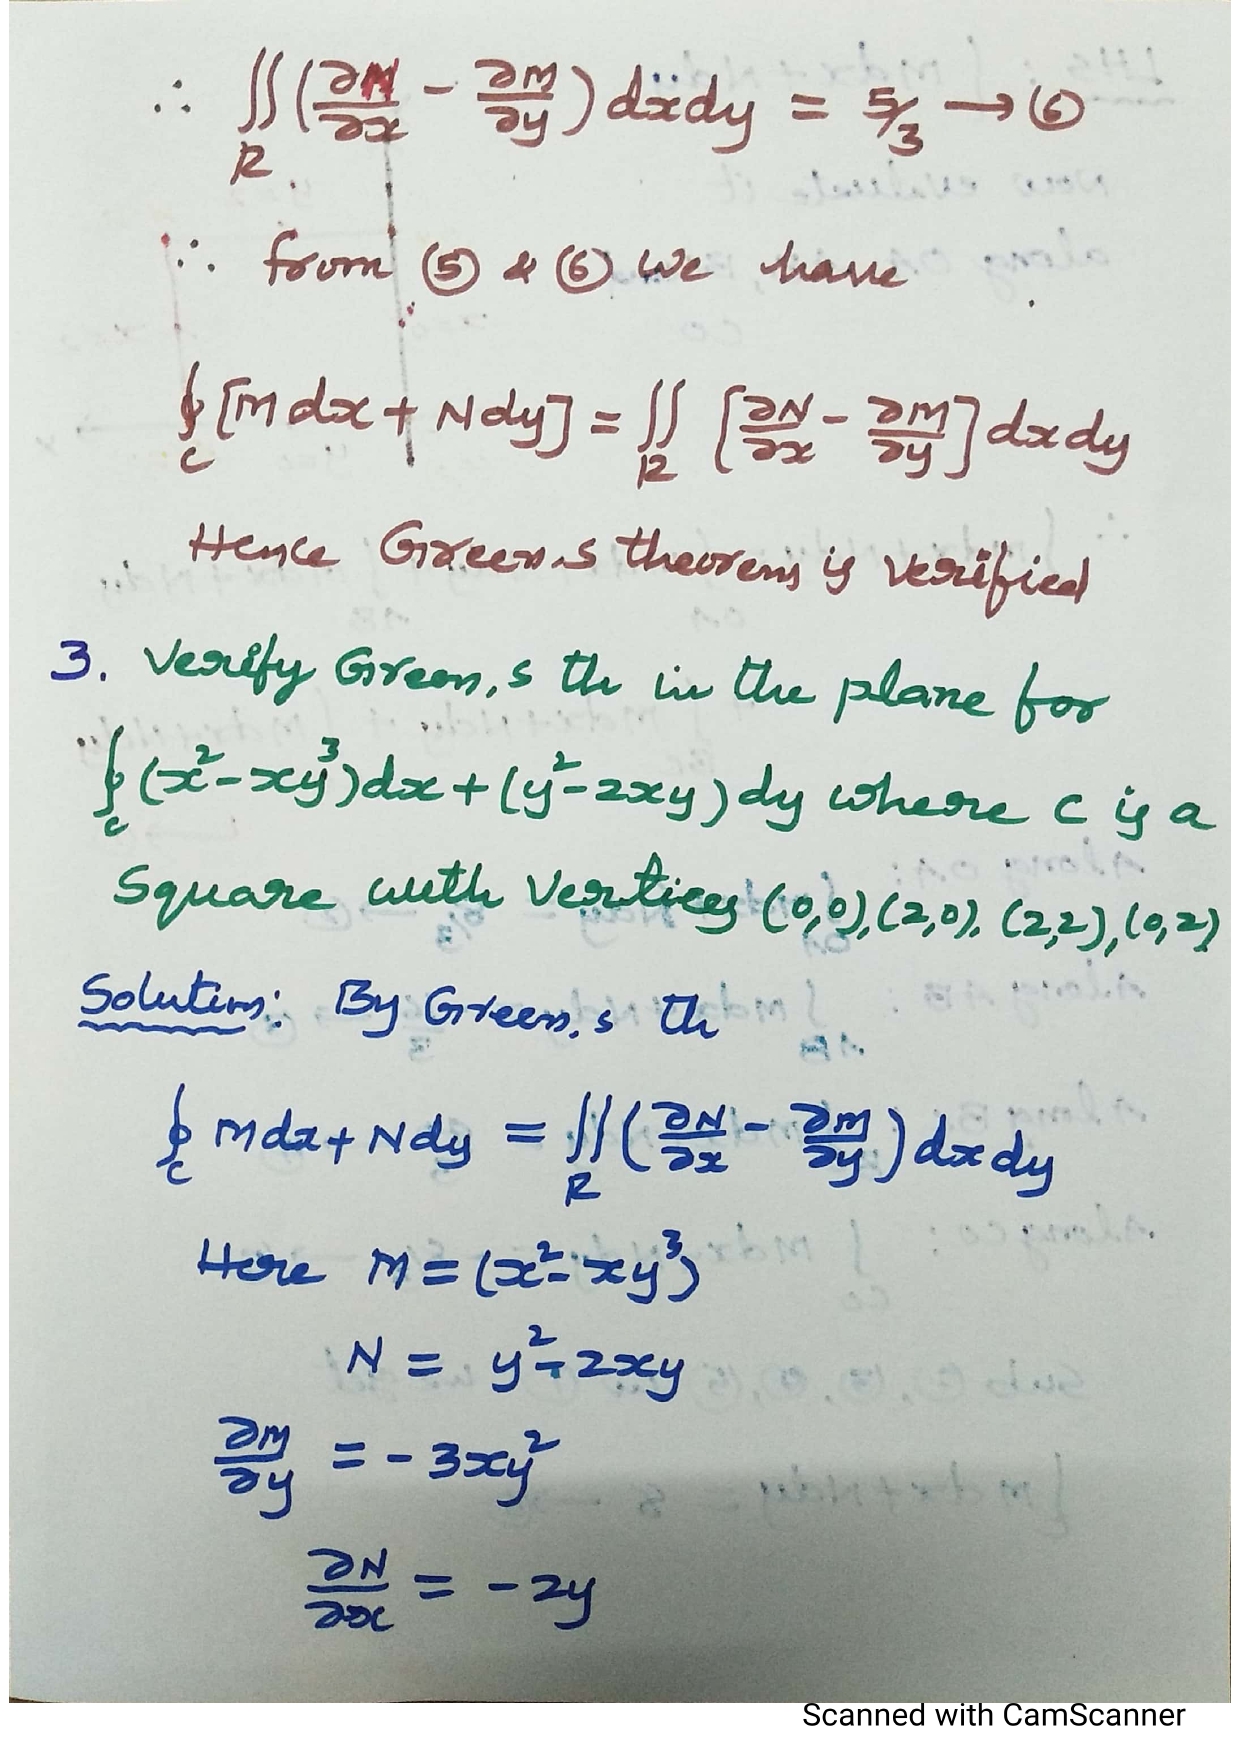 ∴ ∬_R (∂N/∂x - ∂M/∂y) dxdy = 5/3 → ⑥
∴ from ⑤ & ⑥ we have
∮_c [Mdx + Ndy] = ∬_R [∂N/∂x - ∂M/∂y] dxdy
Hence Green,s theorem is verified
3. Verify Green,s th in the plane for
∮_c (x² - xy³)dx + (y² - 2xy) dy where c is a
Square with vertices (0,0), (2,0), (2,2), (0,2)
Solution: By Green,s th
∮_c Mdx + Ndy = ∬_R (∂N/∂x - ∂M/∂y) dxdy
Here M = (x² - xy³)
N = y² - 2xy
∂M/∂y = -3xy²
∂N/∂x = -2y
Scanned with CamScanner